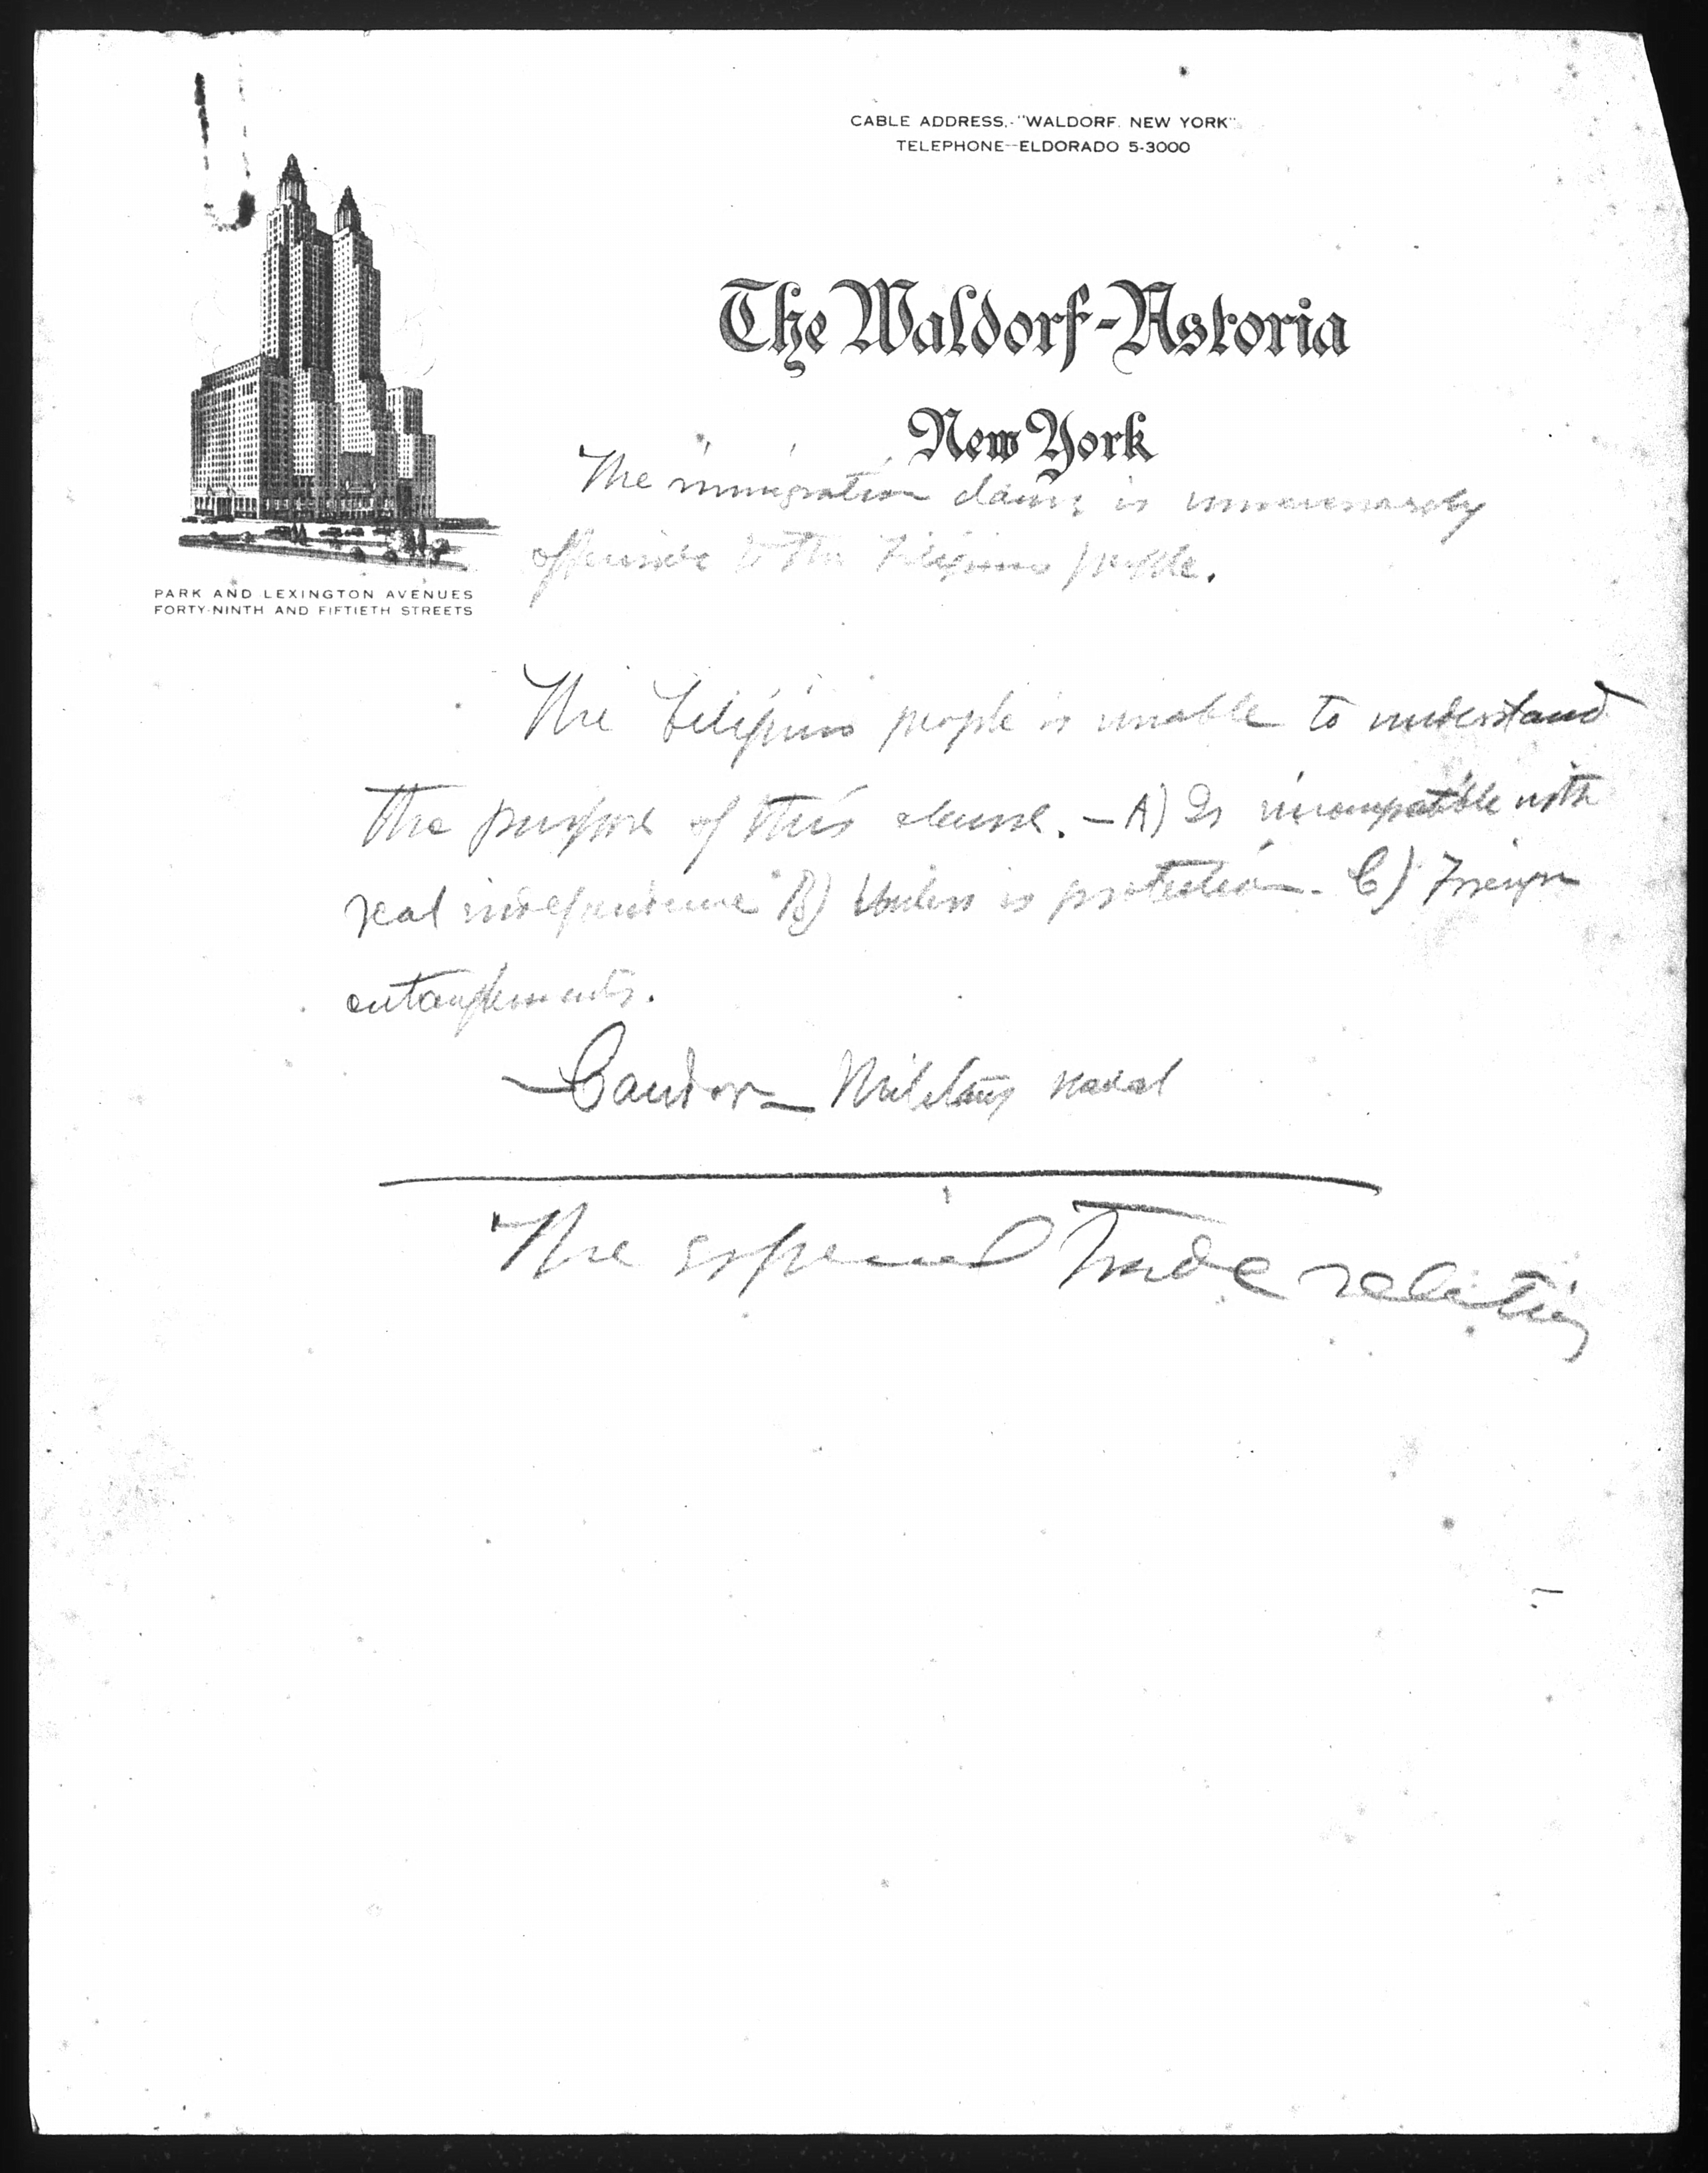 CABLE ADDRESS,-"WALDORF, NEW YORK"
TELEPHONE--ELDORADO 5-3000
The Waldorf-Astoria
New York
PARK AND LEXINGTON AVENUES
FORTY-NINTH AND FIFTIETH STREETS
The immigration clause is unnecessarely
offensive to the Filipino people.
The Filipino people is unable to understand
the purpose of this clause. - A) Is incompatible with
real independence B) Unless is protection - C) Foreign
entanglements.
Military naval
The special trade relation